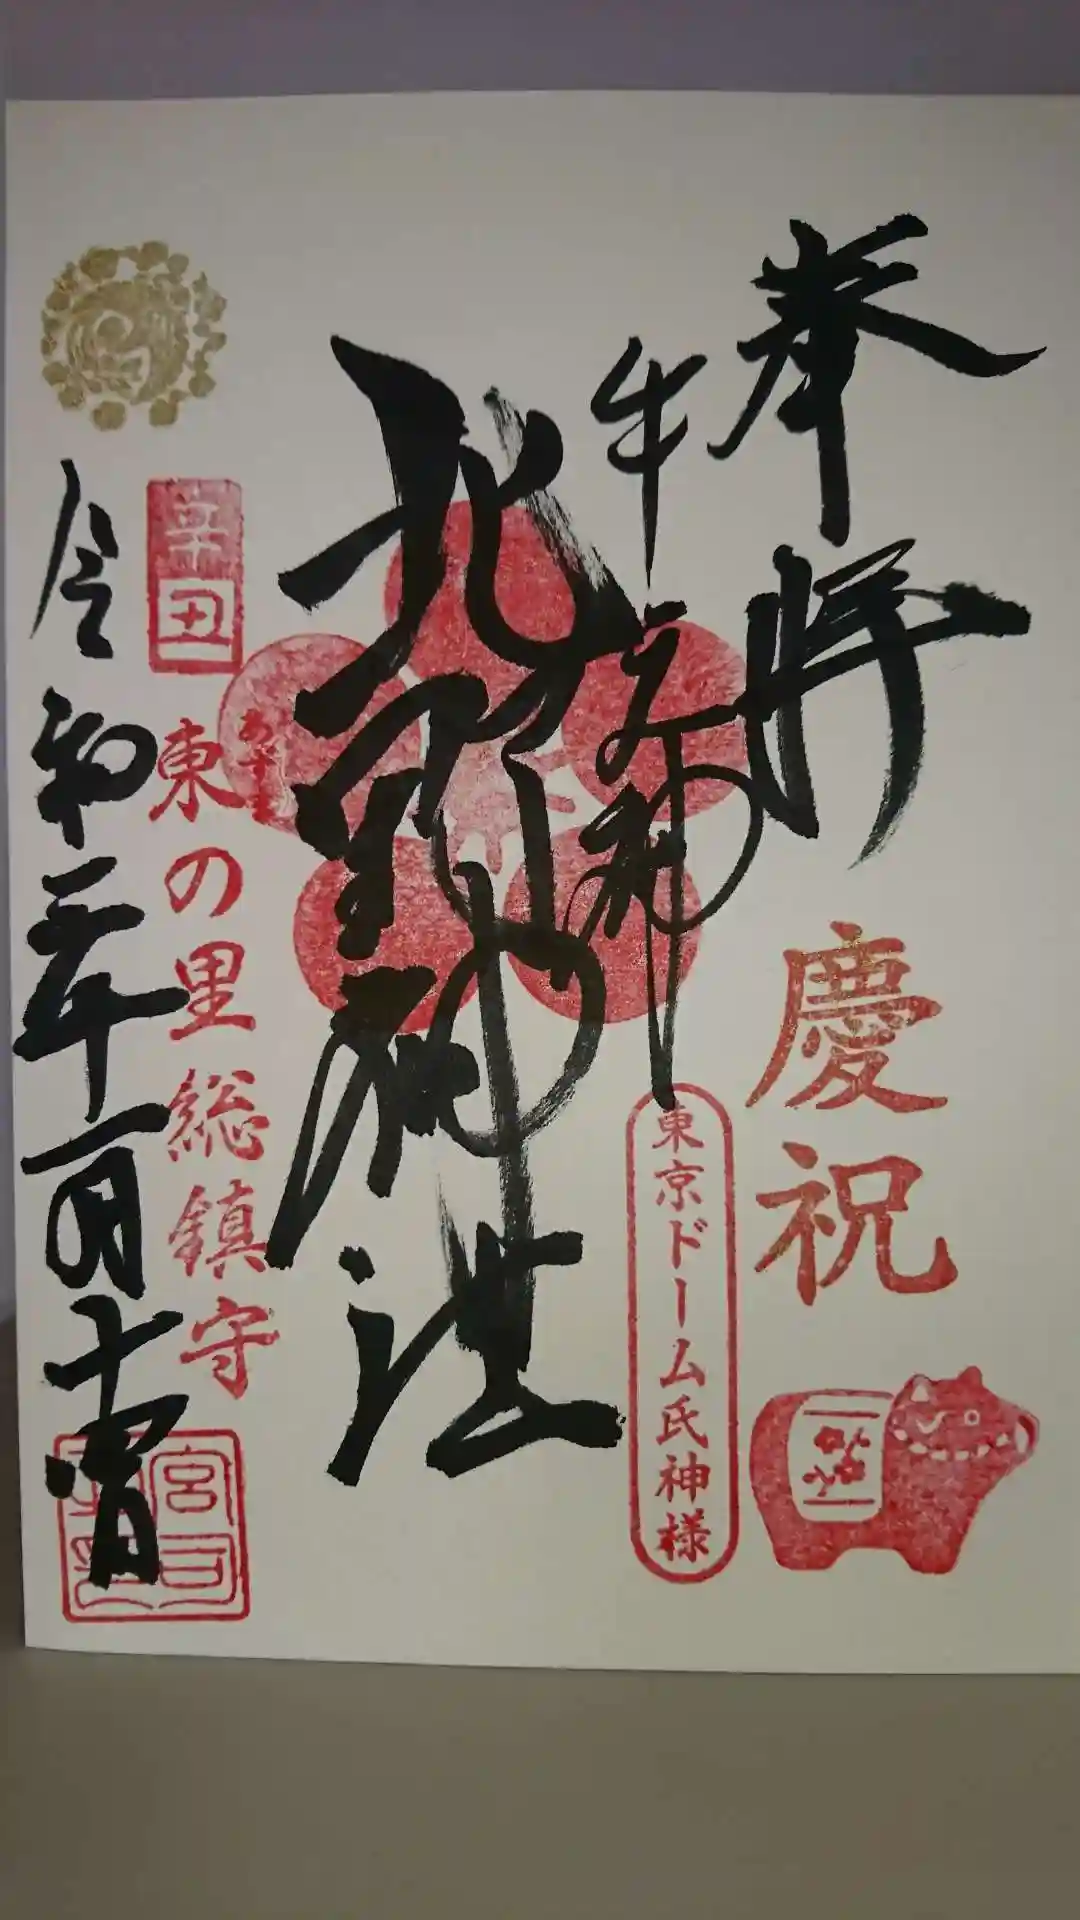 奉拝
慶祝
牛天神
東京ドーム氏神様
北野神社
辛丑
東の里総鎮守
あずま
令和三年一月十一日